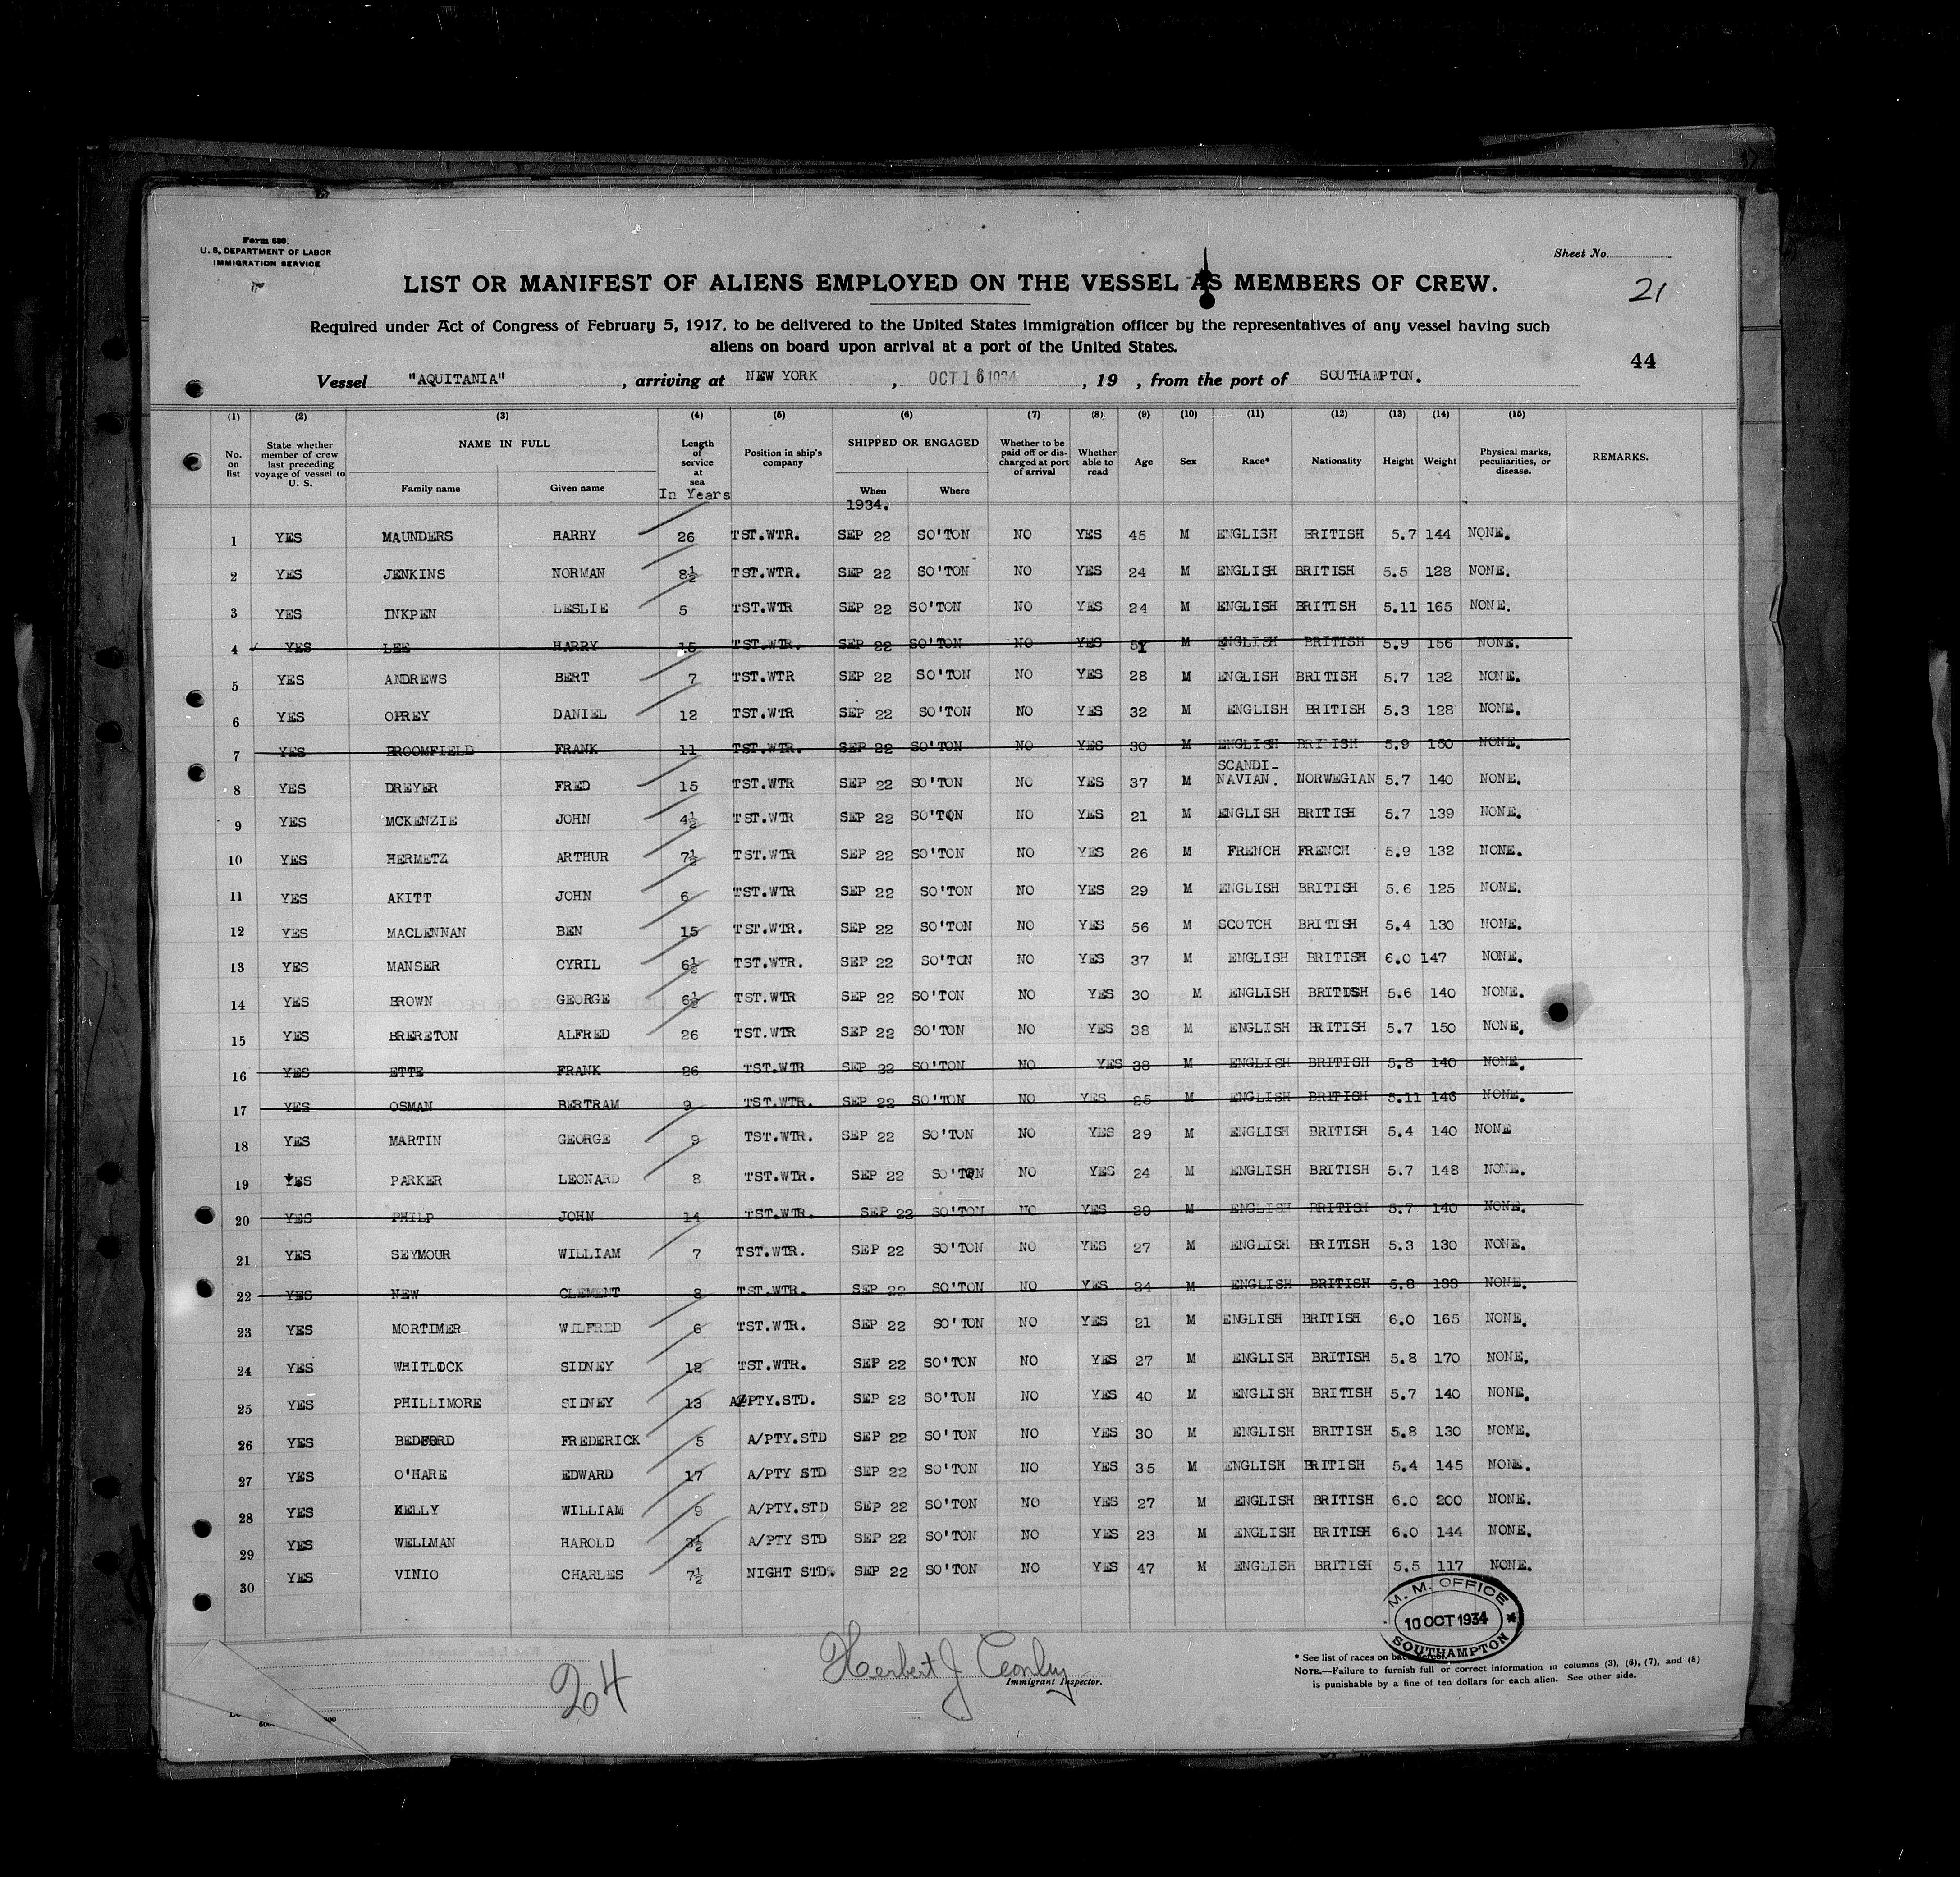 Form 689.
U. S. DEPARTMENT OF LABOR
IMMIGRATION SERVICE
Sheet No.
21
LIST OR MANIFEST OF ALIENS EMPLOYED ON THE VESSEL AS MEMBERS OF CREW.
Required under Act of Congress of February 5, 1917, to be delivered to the United States immigration officer by the representatives of any vessel having such
aliens on board upon arrival at a port of the United States.
44
Vessel "AQUITANIA", arriving at NEW YORK, OCT 16 1934, 19 , from the port of SOUTHAMPTON.
(1) (2) (3) (4) (5) (6) (7) (8) (9) (10) (11) (12) (13) (14) (15)
No. on list State whether member of crew last preceding voyage of vessel to U. S. NAME IN FULL Family name Given name Length of service at sea In Years Position in ship's company SHIPPED OR ENGAGED When 1934. Where Whether to be paid off or discharged at port of arrival Whether able to read Age Sex Race* Nationality Height Weight Physical marks, peculiarities, or disease. REMARKS.
1 YES MAUNDERS HARRY 26 TST.WTR. SEP 22 SO'TON NO YES 45 M ENGLISH BRITISH 5.7 144 NONE.
2 YES JENKINS NORMAN 8½ TST.WTR. SEP 22 SO'TON NO YES 24 M ENGLISH BRITISH 5.5 128 NONE.
3 YES INKPEN LESLIE 5 TST.WTR SEP 22 SO'TON NO YES 24 M ENGLISH BRITISH 5.11 165 NONE.
4 YES LEE HARRY 15 TST.WTR. SEP 22 SO'TON NO YES 51 M ENGLISH BRITISH 5.9 156 NONE.
5 YES ANDREWS BERT 7 TST.WTR SEP 22 SO'TON NO YES 28 M ENGLISH BRITISH 5.7 132 NONE.
6 YES OPREY DANIEL 12 TST.WTR SEP 22 SO'TON NO YES 32 M ENGLISH BRITISH 5.3 128 NONE.
7 YES BROOMFIELD FRANK 11 TST.WTR. SEP 22 SO'TON NO YES 30 M ENGLISH BRITISH 5.9 150 NONE.
8 YES DREYER FRED 15 TST.WTR SEP 22 SO'TON NO YES 37 M SCANDI-NAVIAN. NORWEGIAN 5.7 140 NONE.
9 YES MCKENZIE JOHN 4½ TST.WTR SEP 22 SO'TON NO YES 21 M ENGLISH BRITISH 5.7 139 NONE.
10 YES HERMETZ ARTHUR 7½ TST.WTR SEP 22 SO'TON NO YES 26 M FRENCH FRENCH 5.9 132 NONE.
11 YES AKITT JOHN 6 TST.WTR SEP 22 SO'TON NO YES 29 M ENGLISH BRITISH 5.6 125 NONE.
12 YES MACLENNAN BEN 15 TST.WTR. SEP 22 SO'TON NO YES 56 M SCOTCH BRITISH 5.4 130 NONE.
13 YES MANSER CYRIL 6½ TST.WTR. SEP 22 SO'TON NO YES 37 M ENGLISH BRITISH 6.0 147 NONE.
14 YES BROWN GEORGE 6½ TST.WTR SEP 22 SO'TON NO YES 30 M ENGLISH BRITISH 5.6 140 NONE.
15 YES BRERETON ALFRED 26 TST.WTR SEP 22 SO'TON NO YES 38 M ENGLISH BRITISH 5.7 150 NONE.
16 YES ETTE FRANK 26 TST.WTR SEP 22 SO'TON NO YES 38 M ENGLISH BRITISH 5.8 140 NONE.
17 YES OSMAN BERTRAM 9 TST.WTR. SEP 22 SO'TON NO YES 25 M ENGLISH BRITISH 5.11 146 NONE.
18 YES MARTIN GEORGE 9 TST.WTR. SEP 22 SO'TON NO YES 29 M ENGLISH BRITISH 5.4 140 NONE
19 YES PARKER LEONARD 8 TST.WTR. SEP 22 SO'TON NO YES 24 M ENGLISH BRITISH 5.7 148 NONE.
20 YES PHILP JOHN 14 TST.WTR. SEP 22 SO'TON NO YES 29 M ENGLISH BRITISH 5.7 140 NONE.
21 YES SEYMOUR WILLIAM 7 TST.WTR. SEP 22 SO'TON NO YES 27 M ENGLISH BRITISH 5.3 130 NONE.
22 YES NEW CLEMENT 8 TST.WTR. SEP 22 SO'TON NO YES 24 M ENGLISH BRITISH 5.8 133 NONE.
23 YES MORTIMER WILFRED 6 TST.WTR. SEP 22 SO'TON NO YES 21 M ENGLISH BRITISH 6.0 165 NONE.
24 YES WHITLOCK SIDNEY 12 TST.WTR. SEP 22 SO'TON NO YES 27 M ENGLISH BRITISH 5.8 170 NONE.
25 YES PHILLIMORE SIDNEY 13 A/PTY.STD. SEP 22 SO'TON NO YES 40 M ENGLISH BRITISH 5.7 140 NONE.
26 YES BEDFORD FREDERICK 5 A/PTY.STD SEP 22 SO'TON NO YES 30 M ENGLISH BRITISH 5.8 130 NONE.
27 YES O'HARE EDWARD 17 A/PTY STD SEP 22 SO'TON NO YES 35 M ENGLISH BRITISH 5.4 145 NONE.
28 YES KELLY WILLIAM 9 A/PTY.STD SEP 22 SO'TON NO YES 27 M ENGLISH BRITISH 6.0 200 NONE.
29 YES WELLMAN HAROLD 3½ A/PTY STD SEP 22 SO'TON NO YES 23 M ENGLISH BRITISH 6.0 144 NONE.
30 YES VINIO CHARLES 7½ NIGHT STD SEP 22 SO'TON NO YES 47 M ENGLISH BRITISH 5.5 117 NONE.
M. M. OFFICE
10 OCT 1934
SOUTHAMPTON
24
Herbert J
Immigrant Inspector.
* See list of races on back
NOTE.—Failure to furnish full or correct information in columns (3), (6), (7), and (8)
is punishable by a fine of ten dollars for each alien. See other side.